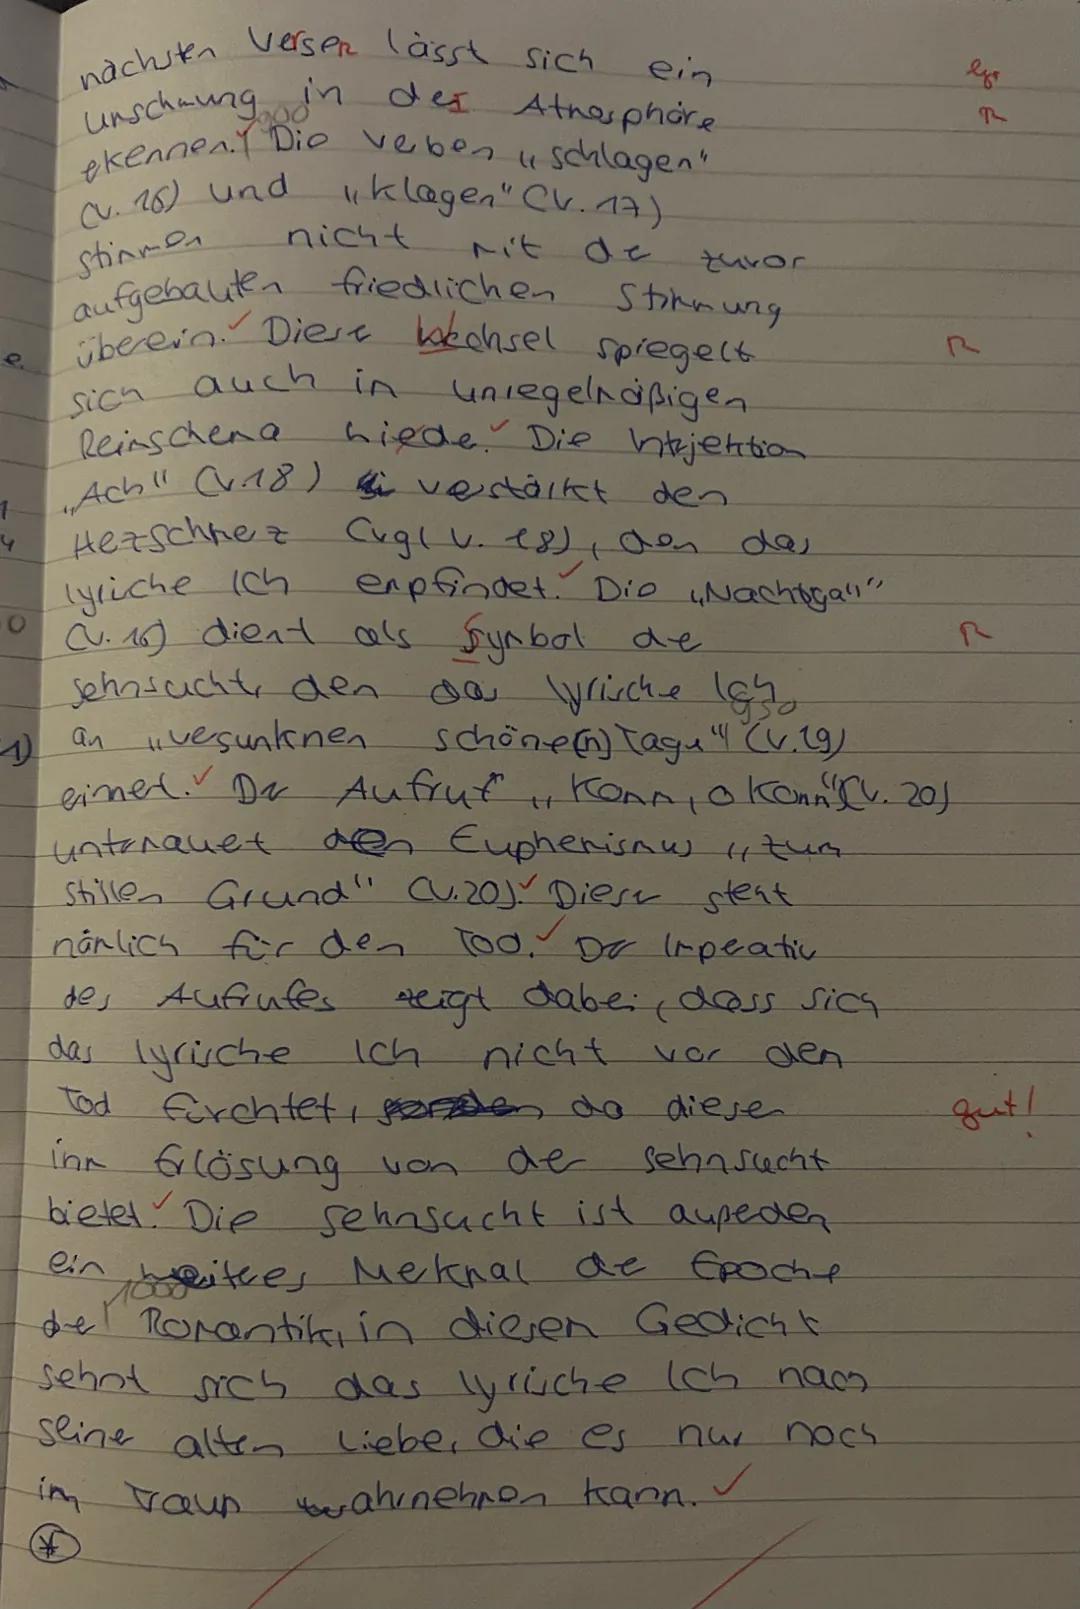 nächsten Versen lässt sich ein
Umschwung in der Atmosphäre
900
erkennen. Die Verben „schlagen"
(V. 16) und „klagen" (V. 17)
stimmen nicht mit der zuvor
aufgebauten friedlichen Stimmung
überein. Dieser Wechsel spiegelt
sich auch in unregelmäßigen
Reimschema nieder. Die Interjektion
„Ach" (V.18) verstärkt den
Herzschmerz (vgl V. 18), den das
lyrische Ich empfindet. Die „Nachtigall"
(V. 16) dient als Symbol der
Sehnsucht, den das lyrische Ich
950
an „versunknen schöne(n) Tage" (V.19)
erinnert. Der Aufruf „Komm, o komm" (V. 20)
untermauert den Euphemismus „zum
stillen Grund" (V.20). Dieser steht
nämlich für den Tod. Der Imperativ
des Aufrufes zeigt dabei, dass sich
das lyrische Ich nicht vor den
Tod fürchtet, da dieser
gut!
ihm Erlösung von der Sehnsucht
bietet. Die Sehnsucht ist außerdem
ein weiteres Merkmal der Epoche
1000
der Romantik, in diesem Gedicht
sehnt sich das lyrische Ich nach
seiner alten Liebe, die es nur noch
im Traum wahrnehmen kann.